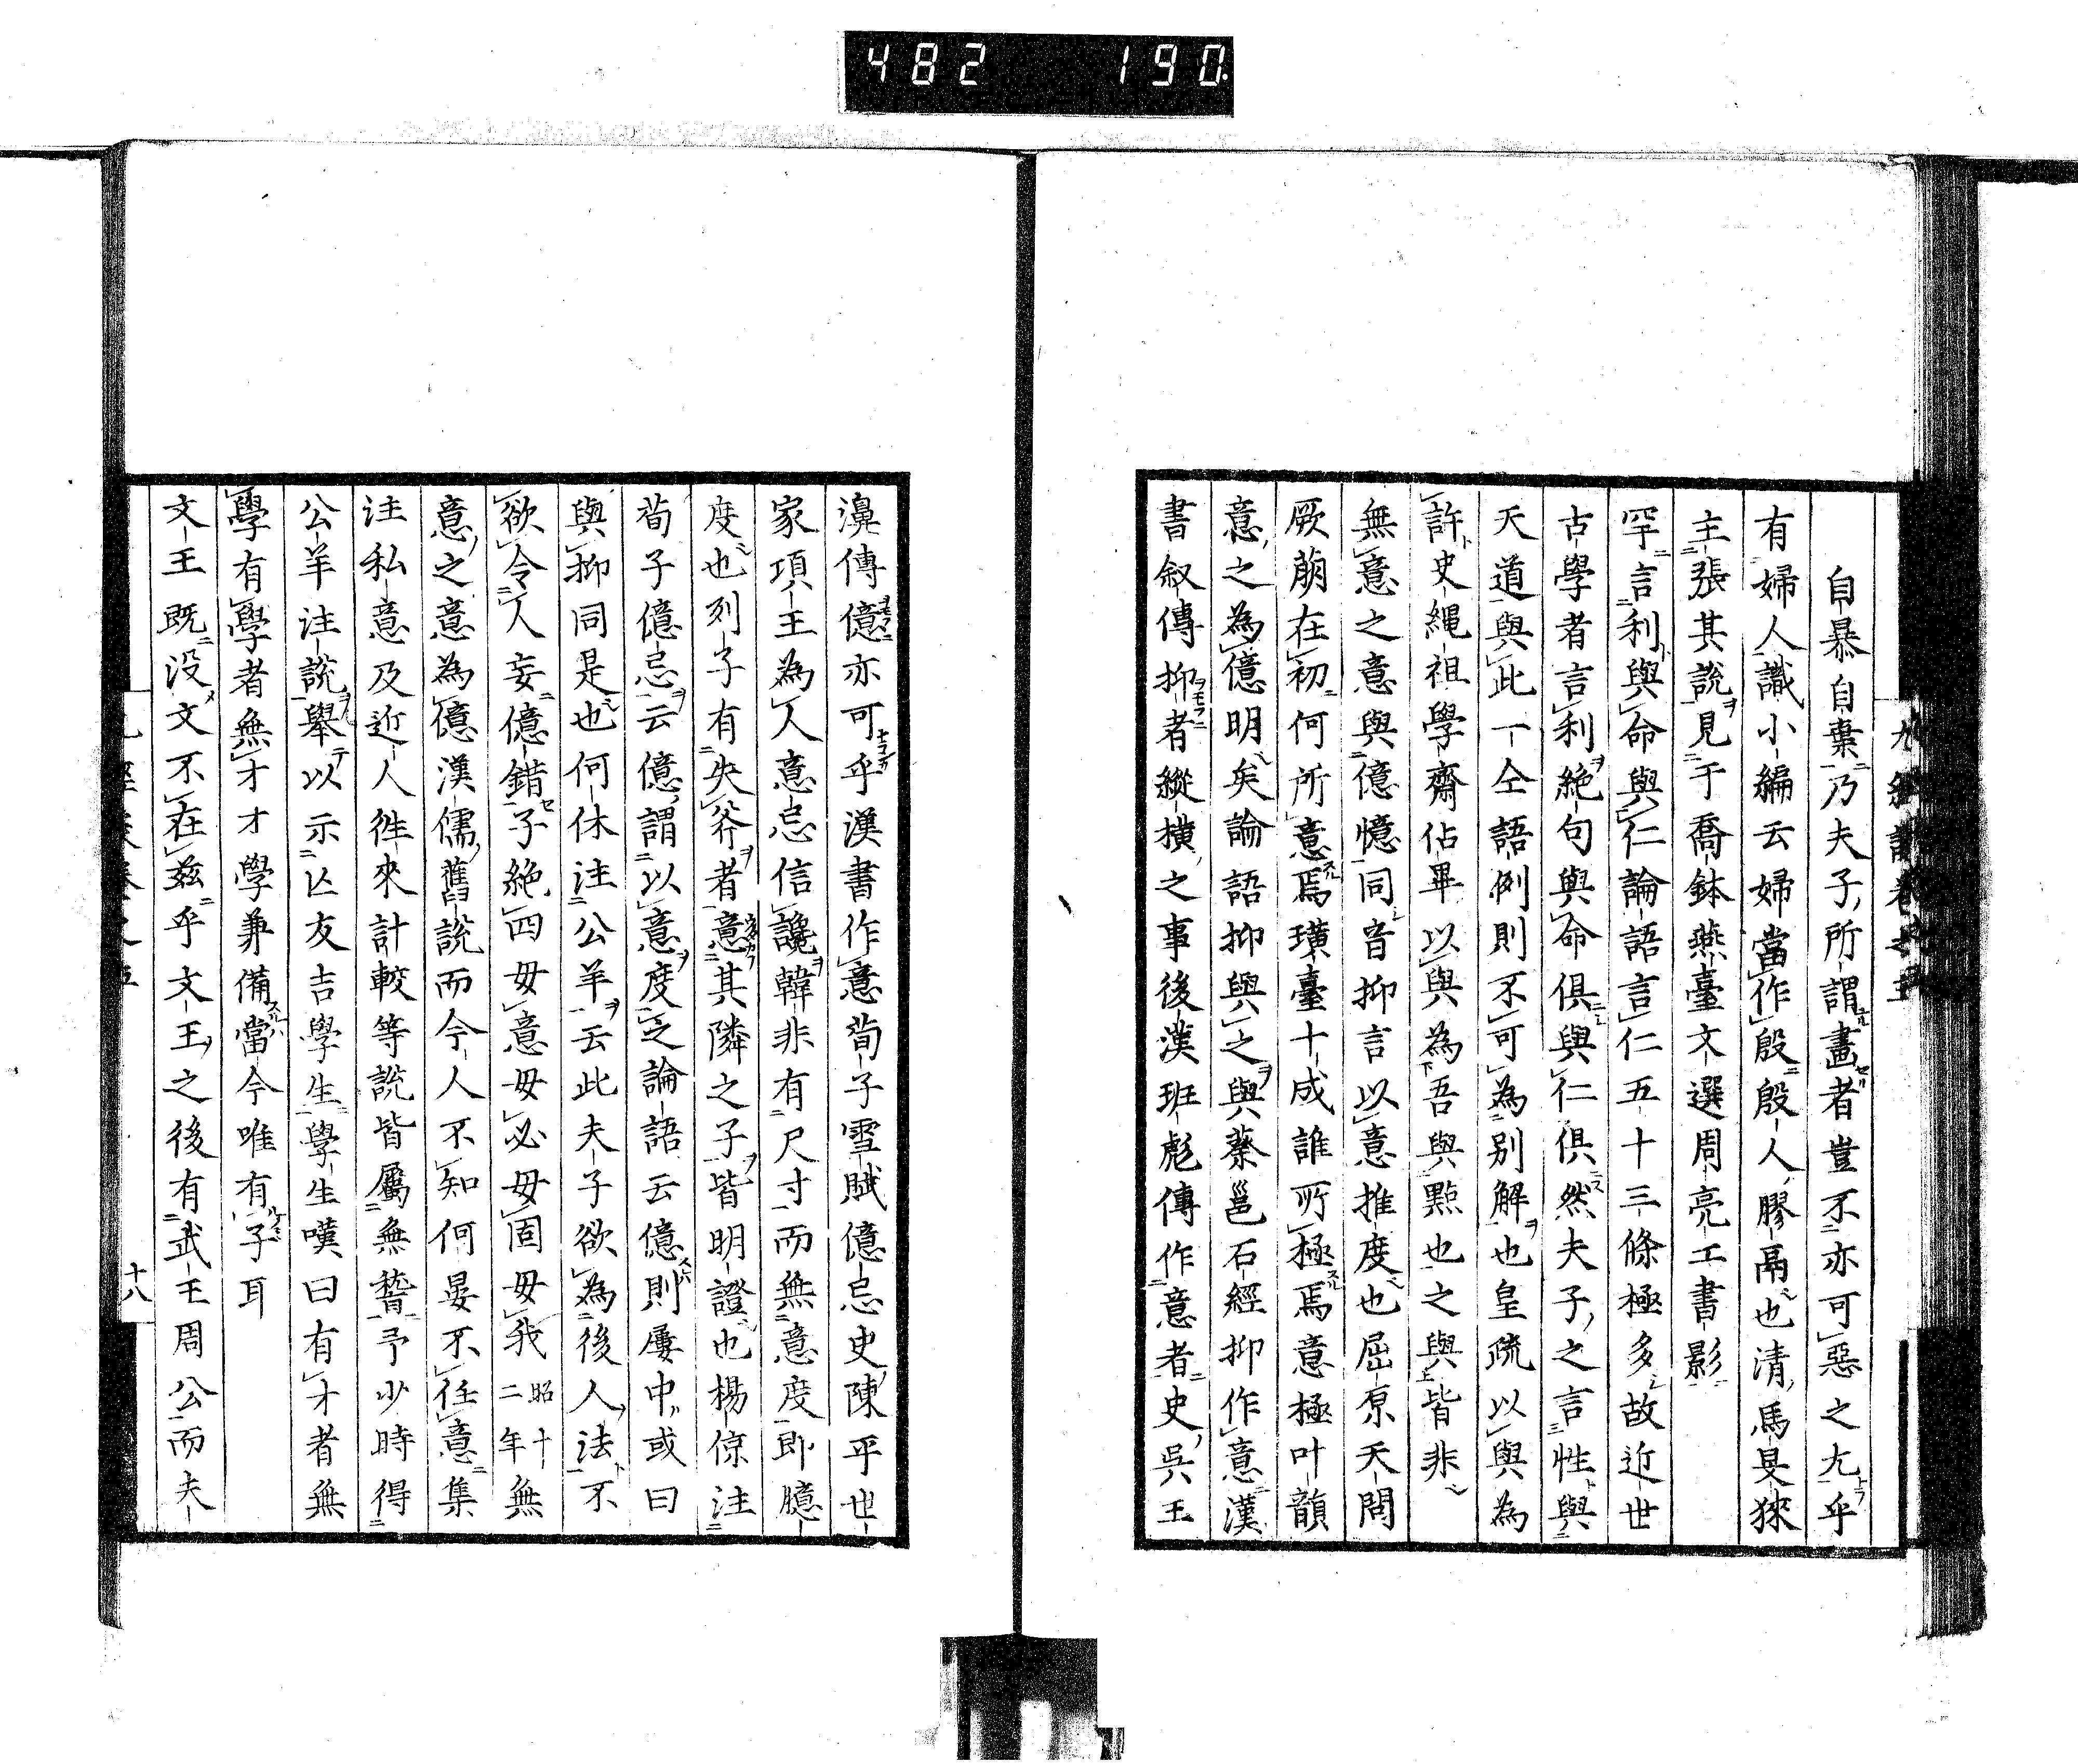 482 190
自暴自棄乃夫子所謂畫者豈不亦可惡之尤乎
有婦人識小編云婦當作殷殷人膠鬲也清馬旻徠
主張其說見于喬鉢燕臺文選周亮工書影
罕言利與命與仁論語言仁五十三條極多故近世
古學者言利絶句與命俱與仁俱然夫子之言性與
天道與此一仝語例則不可為别解也皇疏以與為
許史繩祖學齋佔畢以與為吾與點也之與皆非
無意之意與億憶同音抑言以意推度也屈原天問
厥萠在初何所意焉璜臺十成誰所極焉意極叶韻
意之為億明矣論語抑與之與蔡邕石經抑作意漢
書敘傳抑者縱橫之事後漢班彪傳作意者史吳王
濞傳億亦可乎漢書作意荀子雪賦億忌史陳平世
家項王為人意忌信讒韓非有尺寸而無意度即臆
度也列子有失斧者意其隣之子皆明證也楊倞注
荀子億忌云億謂以意度之論語云億則屢中或曰
與抑同是也何休注公羊云此夫子欲為後人法不
欲令人妄億錯子絶四毋意毋必毋固毋我昭十二年無
意之意為億漢儒舊說而今人不知何晏不任意集
注私意及近人徃來計較等說皆屬無誓予少時得
公羊注說舉以示亡友吉學生學生嘆曰有才者無
學有學者無才才學兼備當今唯有子耳
文王既没文不在茲乎文王之後有武王周公而夫
十八